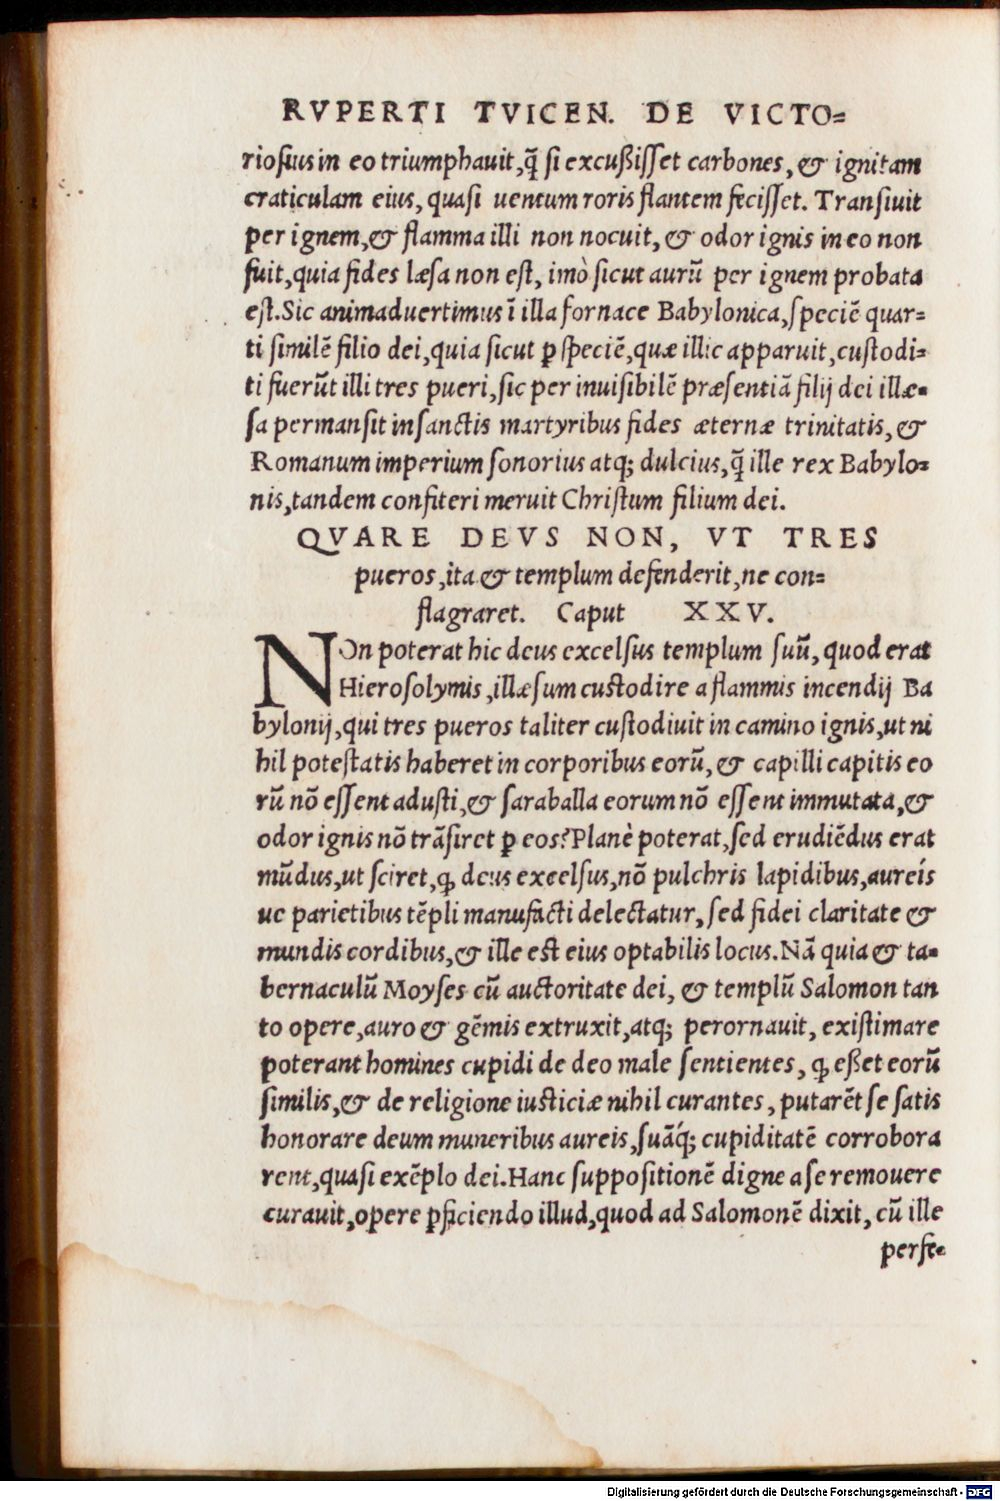 RVPERTI TVICEN. DE VICTO=
riosius in eo triumphauit, q̃ si excußisset carbones, & ignitam
craticulam eius, quasi uentum roris flantem fecisset. Transiuit
per ignem, & flamma illi non nocuit, & odor ignis in eo non
fuit, quia fides læsa non est, imò sicut aurũ per ignem probata
est. Sic animaduertimus ĩ illa fornace Babylonica, speciẽ quar=
ti similẽ filio dei, quia sicut ꝑ speciẽ, quæ illic apparuit, custodi=
ti fuerũt illi tres pueri, sic per inuisibilẽ præsentiã filij dei illæ=
sa permansit in sanctis martyribus fides æternæ trinitatis, &
Romanum imperium sonorius atq; dulcius, q̃ ille rex Babylo=
nis, tandem confiteri meruit Christum filium dei.
QVARE DEVS NON, VT TRES
pueros, ita & templum defenderit, ne con=
flagraret. Caput XXV.
NOn poterat hic deus excelsus templum suũ, quod erat
Hierosolymis, illæsum custodire a flammis incendij Ba
bylonij, qui tres pueros taliter custodiuit in camino ignis, ut ni
hil potestatis haberet in corporibus eorũ, & capilli capitis eo
rũ nõ essent adusti, & saraballa eorum nõ essent immutata, &
odor ignis nõ trãsiret ꝑ eos? Planè poterat, sed erudiẽdus erat
mũdus, ut sciret, ꝙ deus excelsus, nõ pulchris lapidibus, aureís
ue parietibus tẽpli manufacti delectatur, sed fidei claritate &
mundis cordibus, & ille est eius optabilis locus. Nã quia & ta=
bernaculũ Moyses cũ auctoritate dei, & templũ Salomon tan
to opere, auro & gẽmis extruxit, atq; perornauit, existimare
poterant homines cupidi de deo male sentientes, ꝙ eßet eorũ
similis, & de religione iusticiæ nihil curantes, putarẽt se satis
honorare deum muneribus aureis, suãq́; cupiditatẽ corrobora
rent, quasi exẽplo dei. Hanc suppositionẽ digne a se remouere
curauit, opere ꝑficiendo illud, quod ad Salomonẽ dixit, cũ ille
perfe=
Digitalisierung gefördert durch die Deutsche Forschungsgemeinschaft - DFG